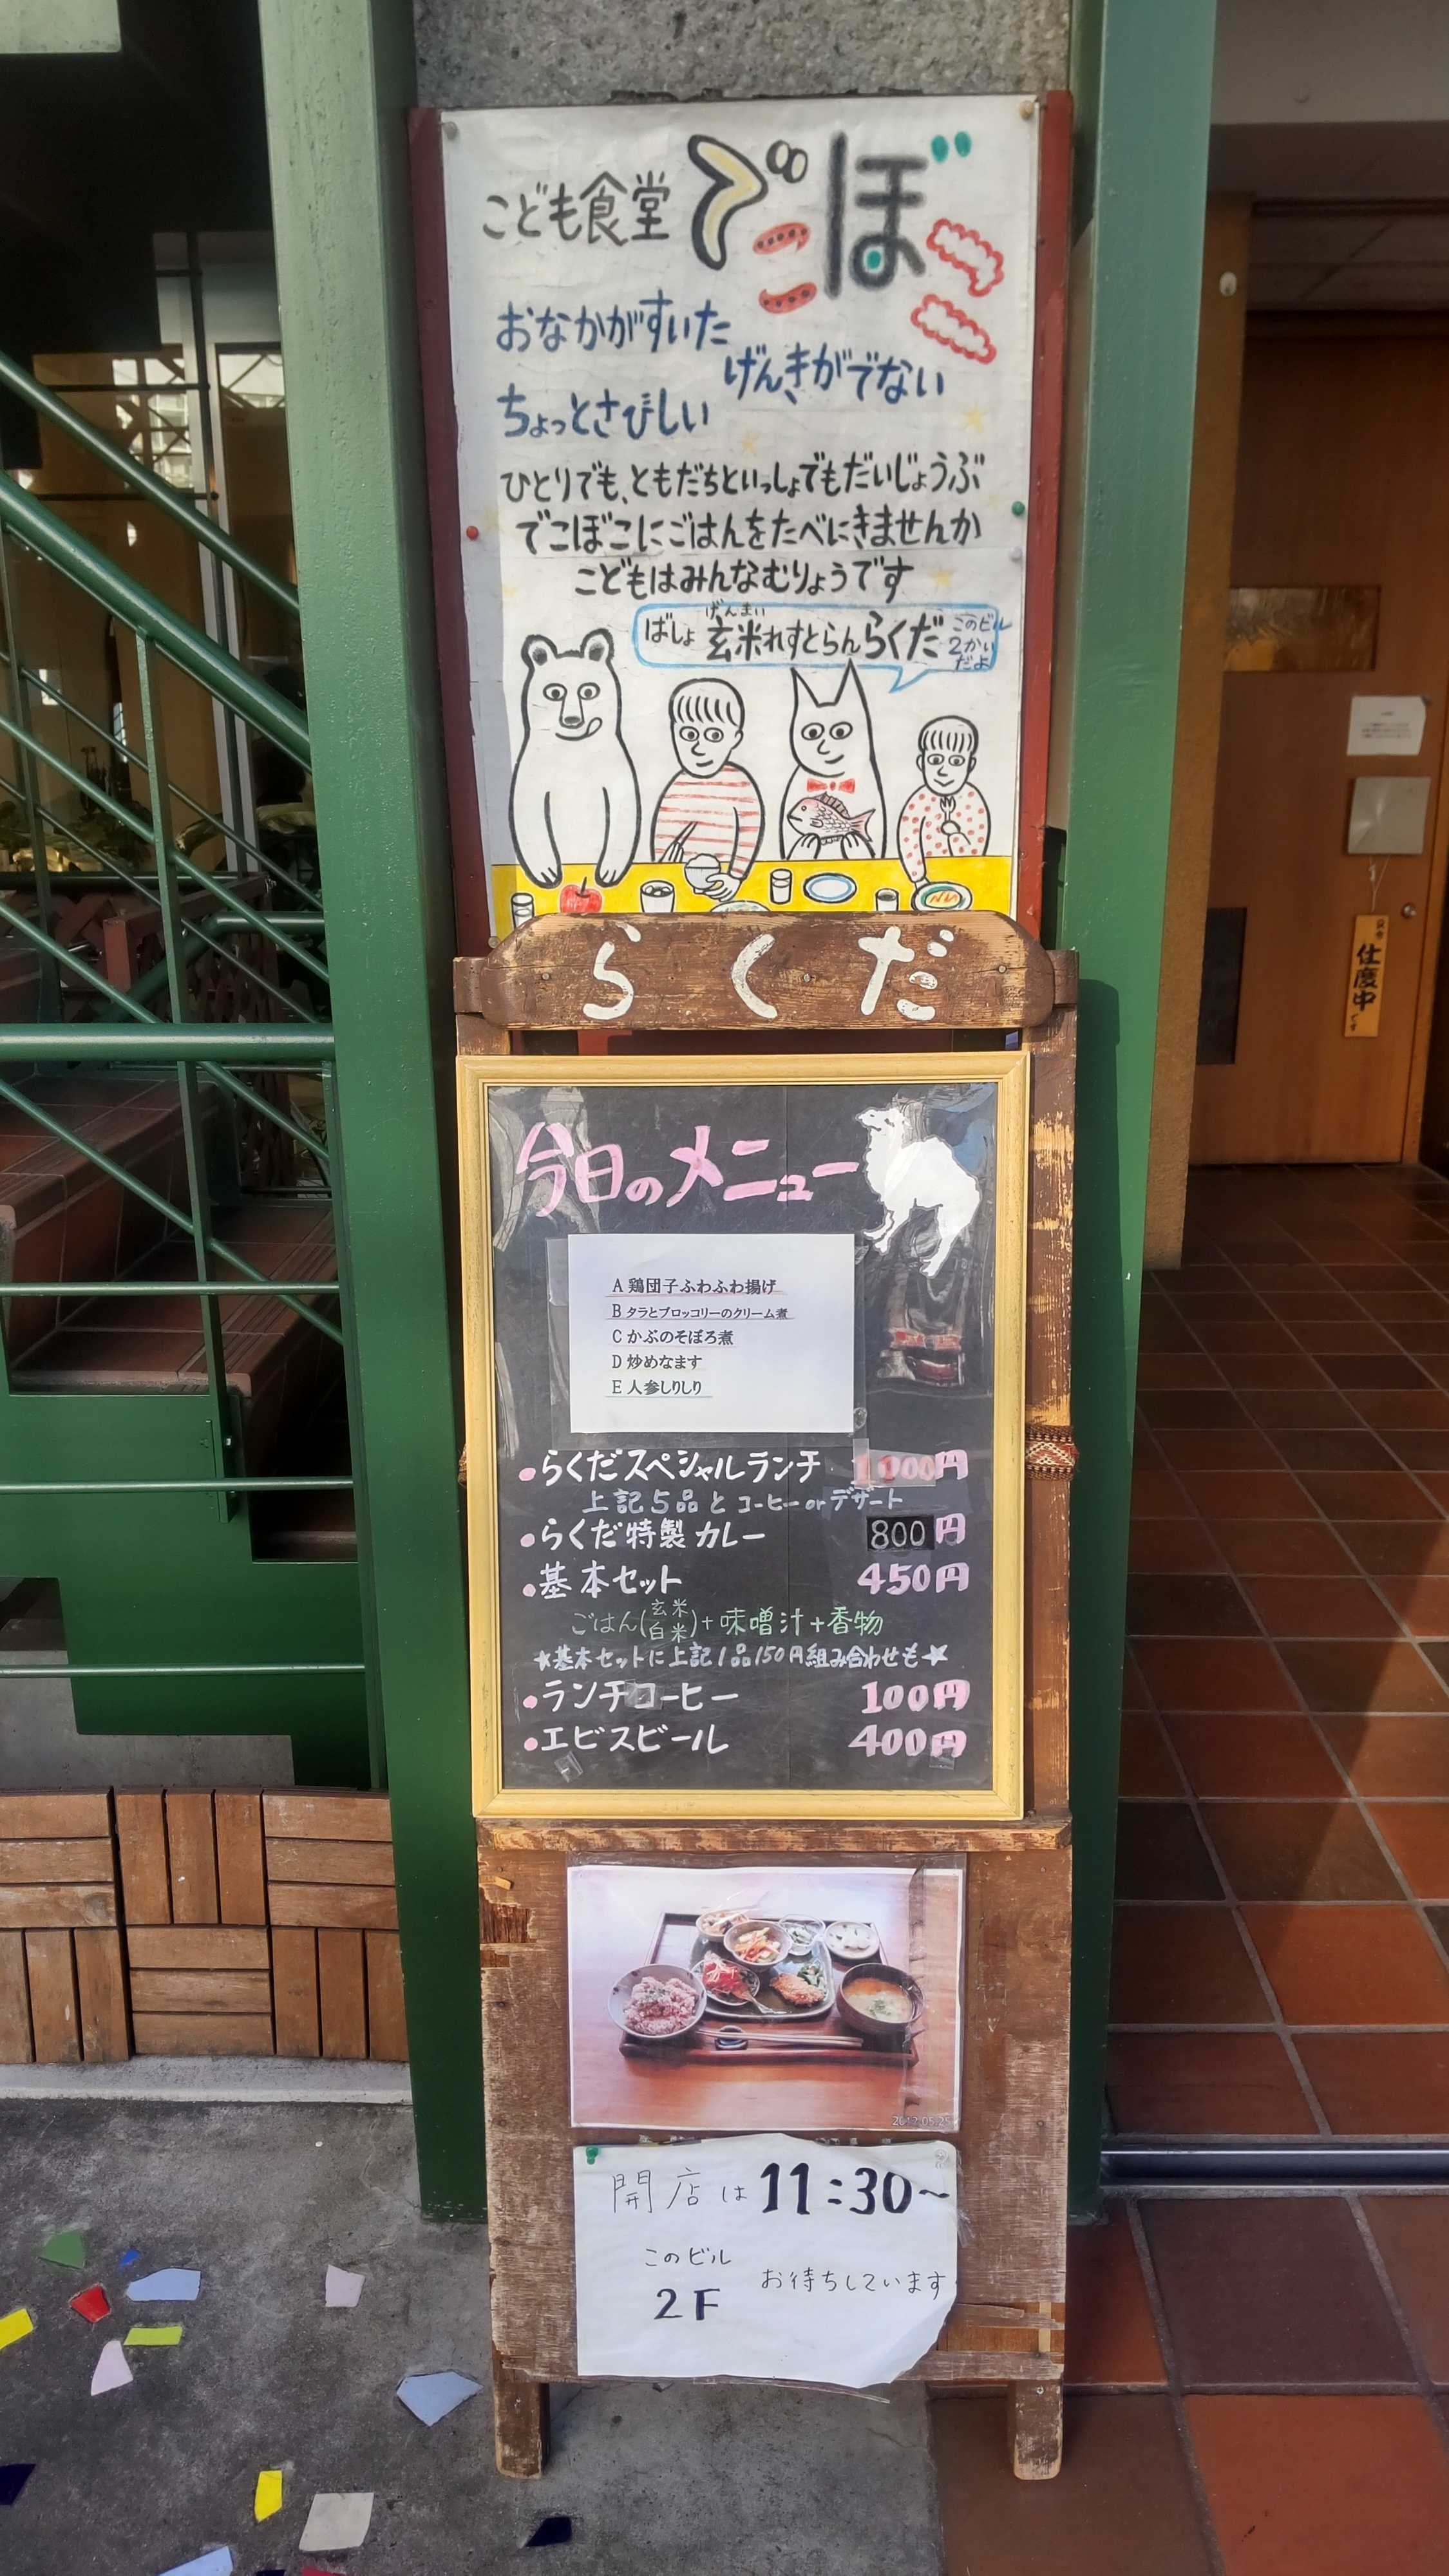 こども食堂 でこぼこ
おなかがすいた
げんきがでない
ちょっとさびしい
ひとりでも、ともだちといっしょでもだいじょうぶ
でこぼこにごはんをたべにきませんか
こどもはみんなむりょうです
ばしょ 玄米れすとらんらくだ
げんまい
このビル
2かい
だよ
らくだ
今日のメニュー
A 鶏団子ふわふわ揚げ
B タラとブロッコリーのクリーム煮
C かぶのそぼろ煮
D 炒めなます
E 人参しりしり
•らくだスペシャルランチ 1000円
上記5品とコーヒーorデザート
•らくだ特製カレー 800円
•基本セット 450円
ごはん(玄米 白米)+味噌汁+香物
★基本セットに上記1品150円組み合わせも★
•ランチコーヒー 100円
•エビスビール 400円
2012.05.25
開店は 11:30~
このビル
2F
お待ちしています
仕度中
です